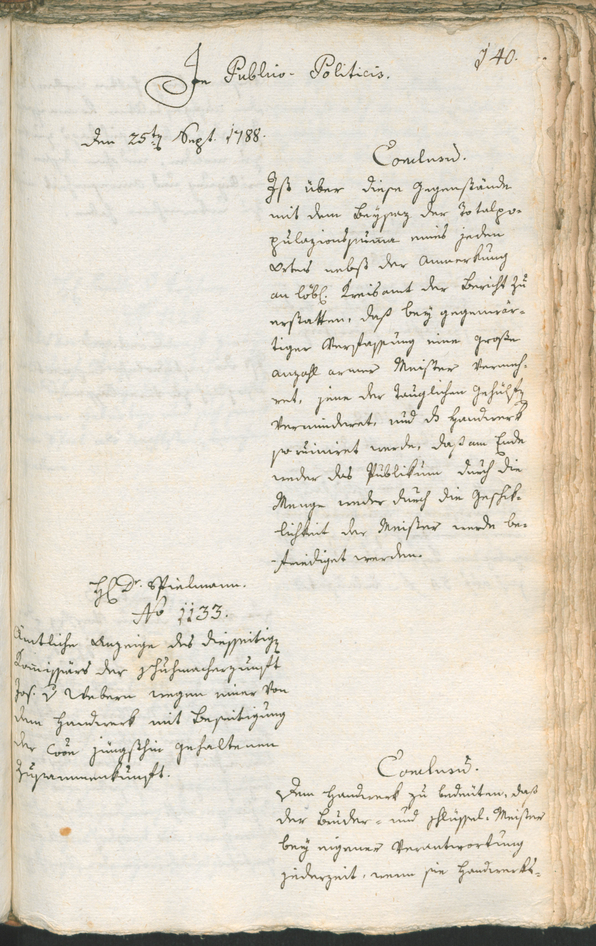 In Publico-Politicis.
740.
den 25ten Sept. 1788.
Conclusũ.
Ist über diese Gegenstände
mit dem Beysaz der Totalpo-
pulazionssuma eines jeden
Ortes nebst der Anmerkung
an löbl. Kreisamt der Bericht zu
erstatten, daß bey gegenwär-
tiger Verfassung eine große
Anzahl armer Meister vermeh-
ret, jene der tauglichen Gehülfen
vermindert, und ds Handwerk
so ruiniret werde, daß am Ende
weder das Publikum durch die
Menge weder durch die Geschik-
lichkeit der Meister werde be-
friediget werden.
H. Dr. Spielmann.
No 1133.
Amtliche Anzeige des diesseitigen
Komissärs der Schuhmacherzunft
Jos. v Webern wegen einer von
dem Handwerk mit Beseitigung
der Coõn jüngsthin gehaltenen
Zusammenkunft.
Conclusũ.
Dem Handwerk zu bedeuten, daß
der Bruder- und Schlüssel-Meister
bey eigener Verantwortung
jederzeit, wenn sie Handwerks-